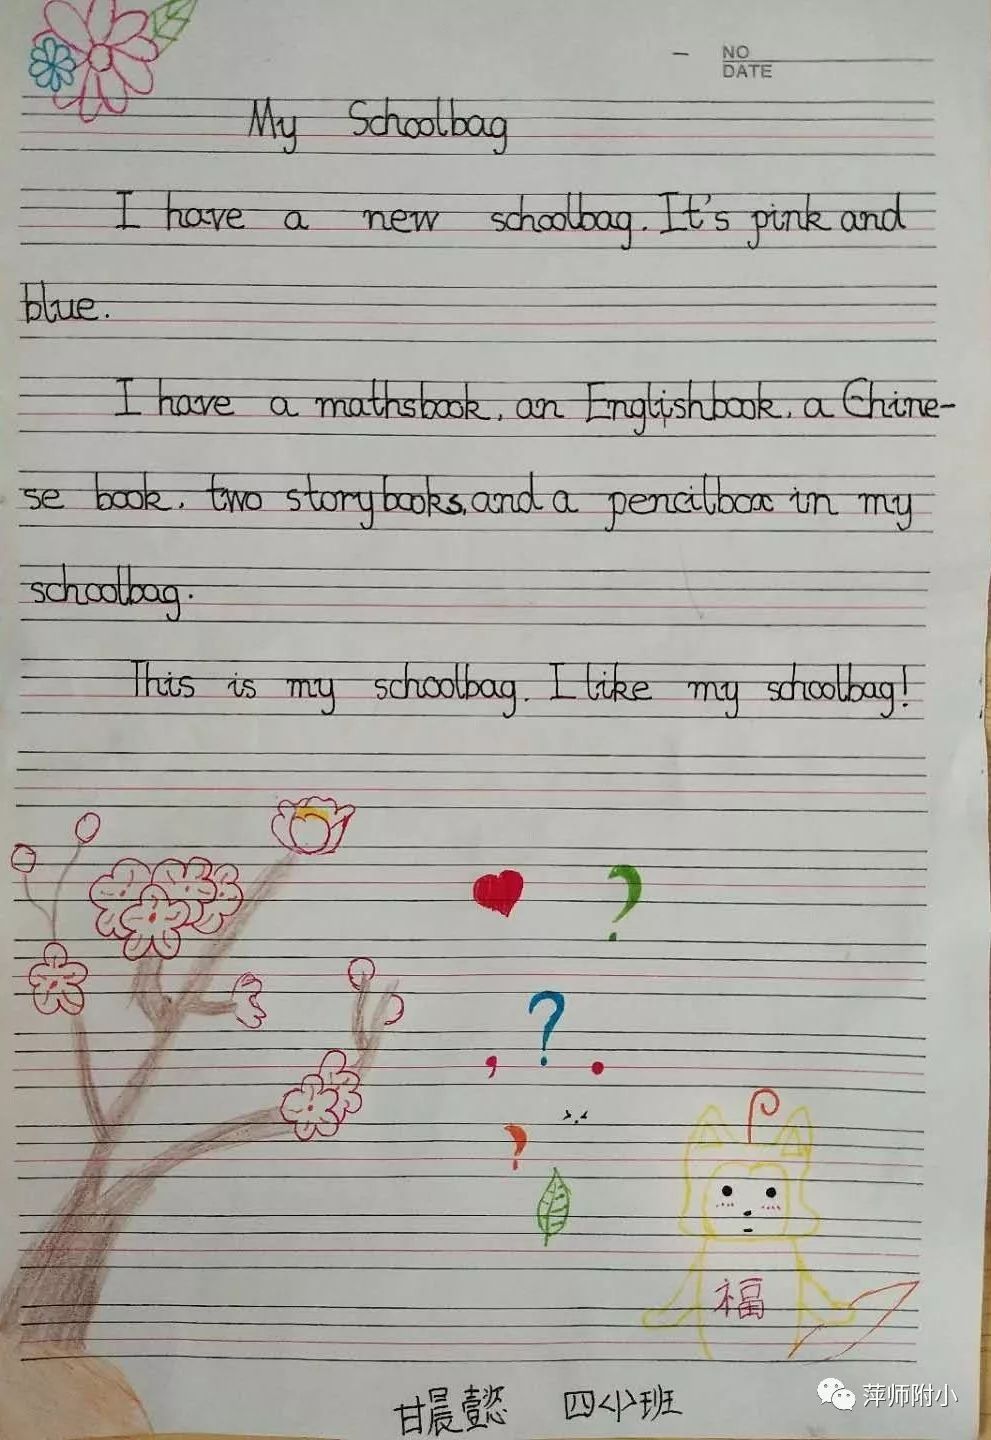 NO
DATE
My Schoolbag
I have a new schoolbag. It's pink and
blue.
I have a mathsbook, an Englishbook, a Chine-
se book, two storybooks, and a pencilbox in my
schoolbag.
This is my schoolbag. I like my schoolbag!
福
甘晨壹恣 四<小>班
萍师附小